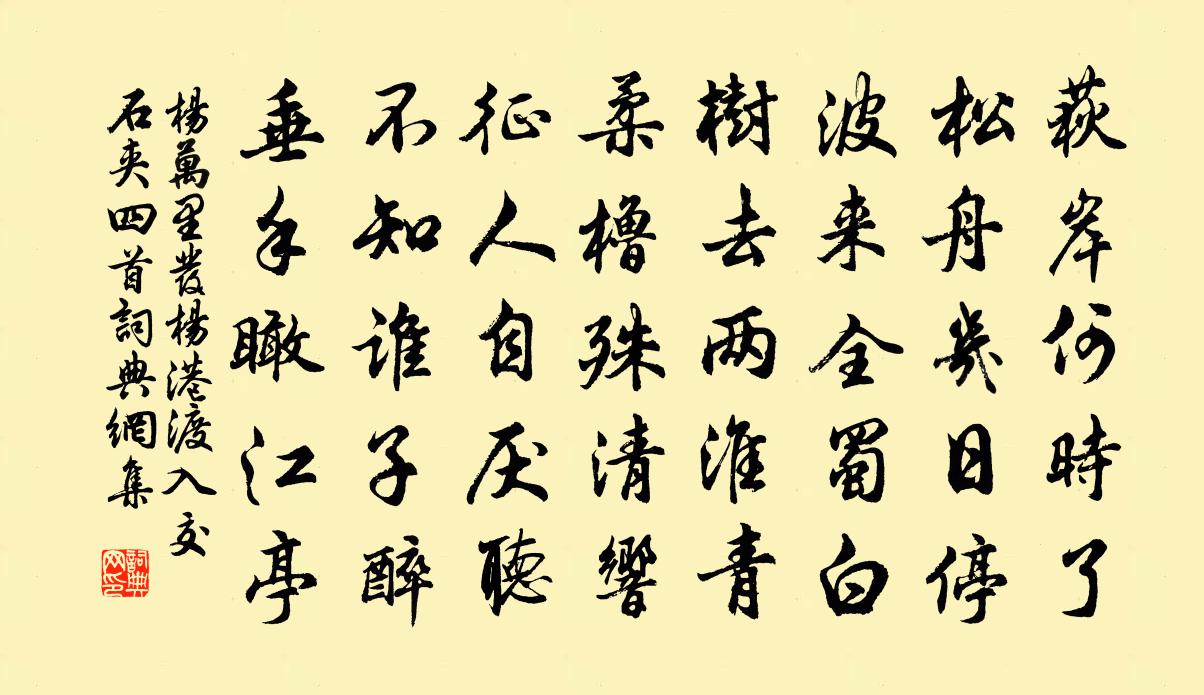 荻岸何時了
松舟幾日停
波来全蜀白
樹去两淮青
柔櫓殊清響
征人自厌聽
不知誰子醉
垂手瞰江亭
楊萬里發楊港渡入交
石夾四首詞典網集
詞典网印